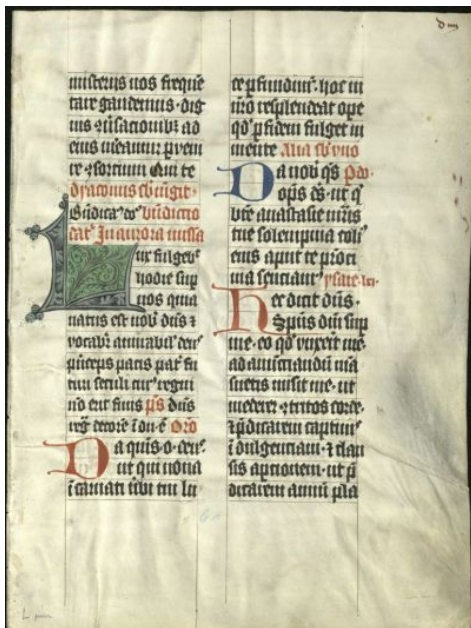 d iij
misteriis nos frequē
tare gaudemus · dig
nis ꝯūsacionibꝫ ad
eius mereamur perveni
re ꝯsorcium Qui te
dyaconus sbiūgit ·
Bn̄dicaꝰ dō bn̄dictio
dat᷑ In aurora missa
Lux fulgebit
hodie sup
nos quia
natus est nob̄ dūs ⁊
vocabit᷑ amirabil̄ deꝰ
p̄nceps pacis pat̄ fu
turi seculi cuiꝰ regni
nō erit finis p̄s dūs
reḡ decorē īdu ē Orō
Da quis · o · deꝰ ·
ut qui noua
ī carnati v̄bi tui lu
ce ꝑfundim᷑ · hoc in
nr̄o resplendeat ope
qd̄ ꝑ fidem fulget in
mente Alia sb vno
Da nob̄ q̄s
op̄s ds̄ · ut q̄
bt̄e anastasie mr̄is
tue solempnia colim᷑
eius aput te p̄roci
nia senciamꝰ ysaie · lc̄i ·
Hec dicit dūs ·
Sp̄us dūi sup
me · eo qd̄ vnxerit me ·
ad anūctiandū mā
suetis misit me · ut
mederer ꝯtritos corde ·
⁊ p̄dicarem captiuis
ī dulgenciam · ⁊ clau
sis apcionem · ut p̄
dicarem annū pla